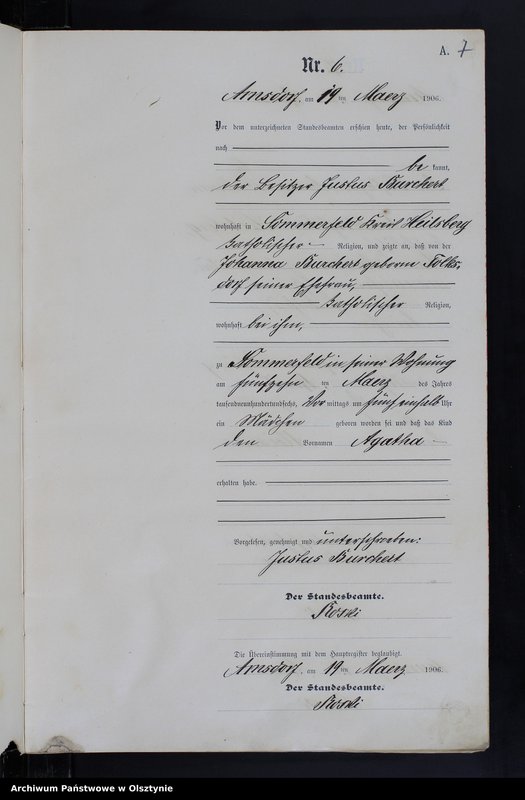 A. 7
Nr. 6.
Arnsdorf, am 19 ten Maerz 1906.
Vor dem unterzeichneten Standesbeamten erschien heute, der Persönlichkeit
nach
be kannt,
der Besitzer Justus Burchert
wohnhaft in Sommerfeld Kreis Heilsberg
katholischer Religion, und zeigte an, daß von der
Johanna Burchert geboren Folks-
dorf seiner Ehefrau,
katholischer Religion,
wohnhaft bei ihm,
zu Sommerfeld in seiner Wohnung
am fünfzehn ten Maerz des Jahres
tausendneunhundertundsechs, Vor mittags um fünfeinhalb Uhr
ein Mädchen geboren worden sei und daß das Kind
den Vornamen Agatha
erhalten habe.
Vorgelesen, genehmigt und unterschrieben:
Justus Burchert
Der Standesbeamte.
Roski
Die Übereinstimmung mit dem Hauptregister beglaubigt.
Arnsdorf, am 19 ten Maerz 1906.
Der Standesbeamte.
Roski
Archiwum Państwowe w Olsztynie